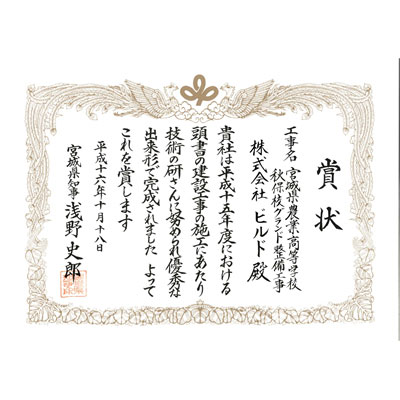 賞状
工事名 宮城県農業高等学校
秋保校グランド整備工事
株式会社 ビルド 殿
貴社は平成十五年度における
頭書の建設工事の施工にあたり
技術の研さんに努められ優秀な
出来形で完成されました よって
これを賞します
平成十六年十月十八日
宮城県知事 浅野史郎